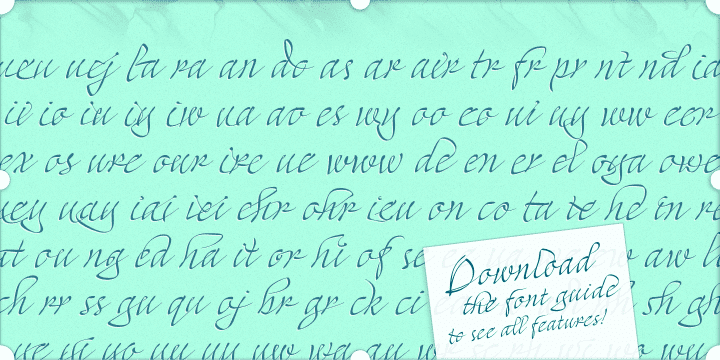 uej la ra an do as ar air tr fr pr nt nd
ii io iu iy iw ua ao es wy oo eo ui uy ww eer
ex os ure our ire ue www de en er el oya owe
uay iai iei ehr ohr ieu on co ta te he in
ou ng ed ha it or hi of se aw
ch rr ss gu qu oj br gr ck ci sh gh
Download
the font guide
to see all features!